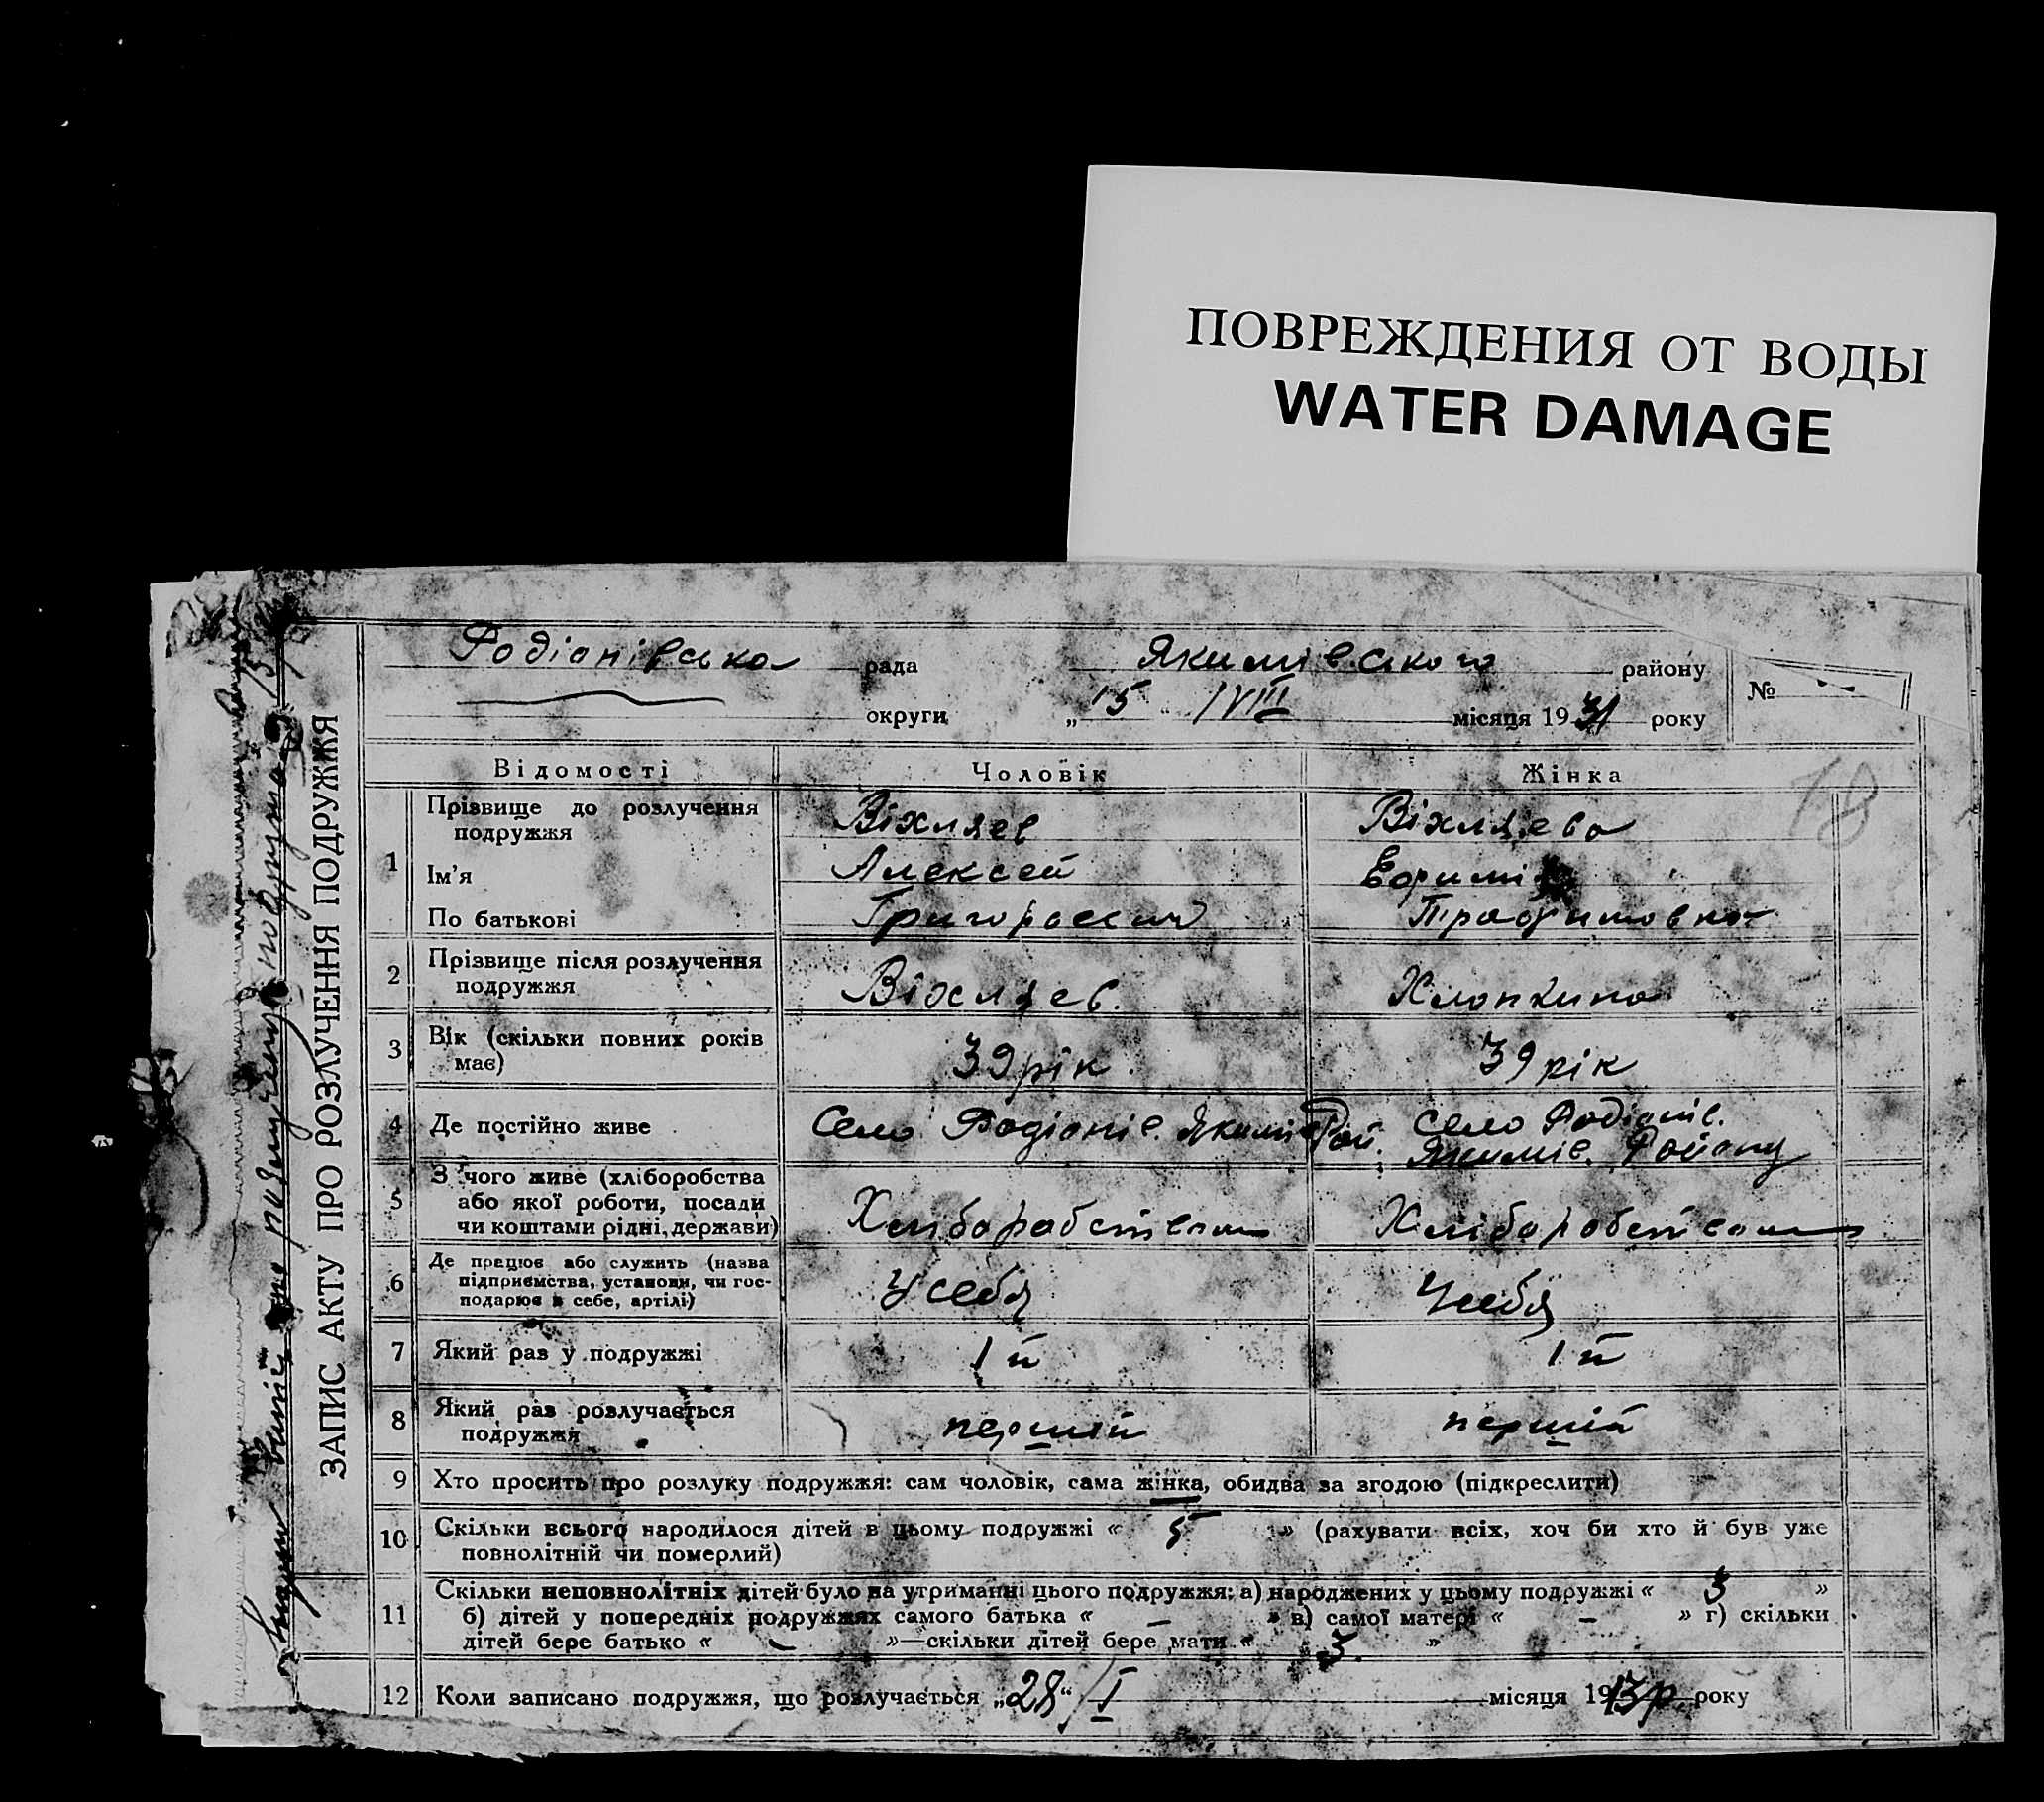 ПОВРЕЖДЕНИЯ ОТ ВОДЫ
WATER DAMAGE
ЗАПИС АКТУ ПРО РОЗЛУЧЕННЯ ПОДРУЖЖЯ
Родіонівська рада Якимівського району №
округи „15 VIII місяця 1931 року
18
Відомості Чоловік Жінка
1 Прізвище до розлучення подружжя Віхляев Віхляева
Ім'я Алексей
По батькові Григорьевич
2 Прізвище після розлучення подружжя Віхляев. Хлопкина
3 Вік (скільки повних років має) 39 рік. 39 рік
4 Де постійно живе Село Родіонів. Якимів Рай. село Родіонів. Якимів. Району
5 З чого живе (хліборобства або якої роботи, посади чи коштами рідні, держави) Хліборобством Хліборобством
6 Де працює або служить (назва підприємства, установи, чи господарює в себе, артілі) У себя У себя
7 Який раз у подружжі 1й 1й
8 Який раз розлучається подружжя першій першій
9 Хто просить про розлуку подружжя: сам чоловік, сама жінка, обидва за згодою (підкреслити)
10 Скільки всього народилося дітей в цьому подружжі « 5 » (рахувати всіх, хоч би хто й був уже
повнолітній чи померлий)
11 Скільки неповнолітніх дітей було на утриманні цього подружжя: а) народжених у цьому подружжі « 3 »
б) дітей у попередніх подружжях самого батька « – » в) самої матері « – » г) скільки
дітей бере батько « – »—скільки дітей бере мати « 3. »
12 Коли записано подружжя, що розлучається „28“ / I місяця 1913 р. року